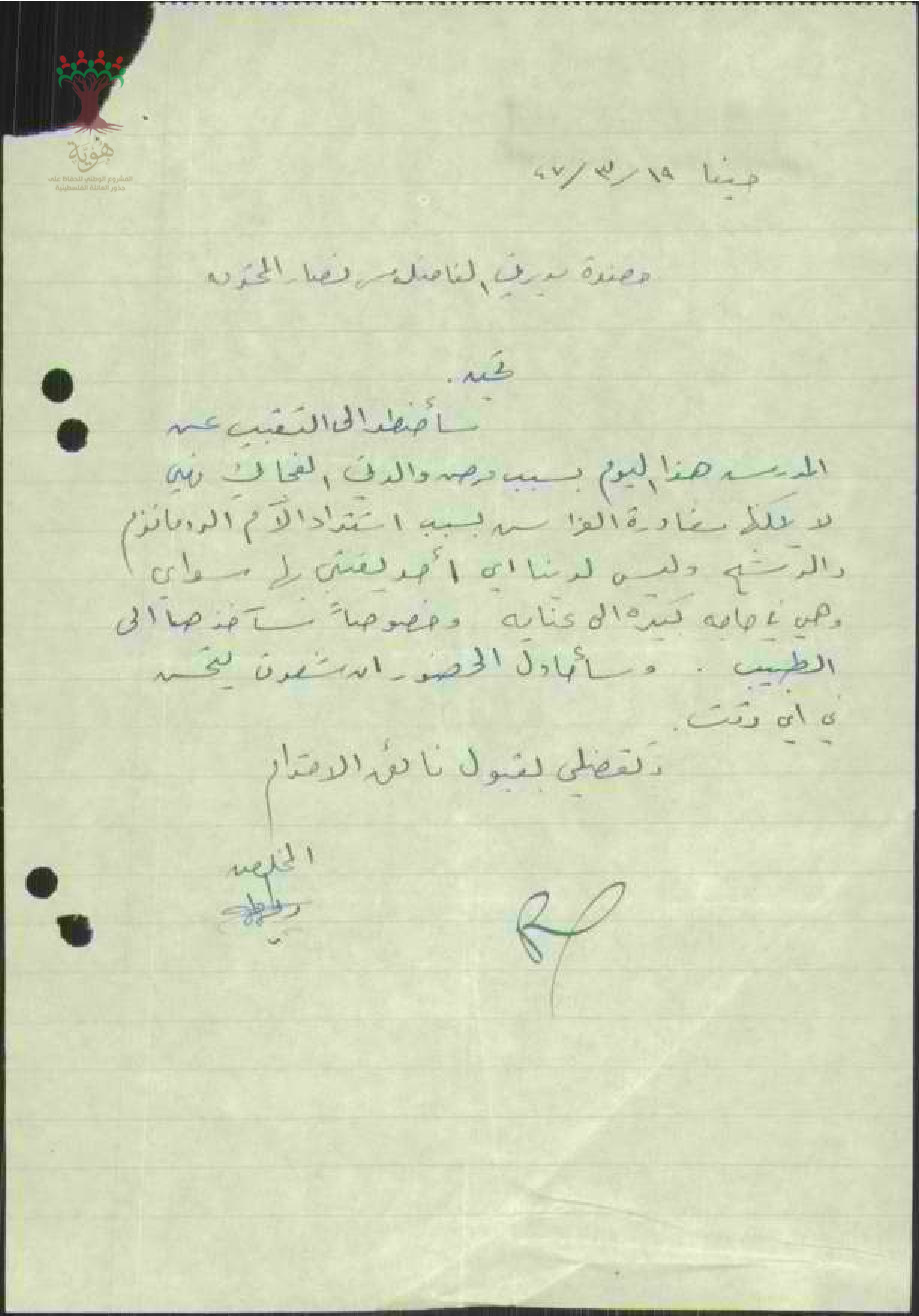 هوية
المشروع الوطني للحفاظ على
جذور العائلة الفلسطينية
حيفا ١٩/٣/٤٧
حضرة مديرتي الفاضلة مس نصار المحترمه
تحيه.
سأضطر الى التغيب عن
المدرسه هذا اليوم بسبب مرض والدتي الفجائي فهي
لا يمكنها مغادرة الفراش بسبب اشتداد الآم الروماتزم
والرشح وليس لدينا اي أحد يعتني بها سواي
وهي في حاجه كبيره الى عنايه وخصوصاً سآخذها الى
الطبيب . وسأحاول الحضور ان شعرت بتحسن
في اي وقت.
وتفضلي بقبول فائق الاحترام
المخلصه